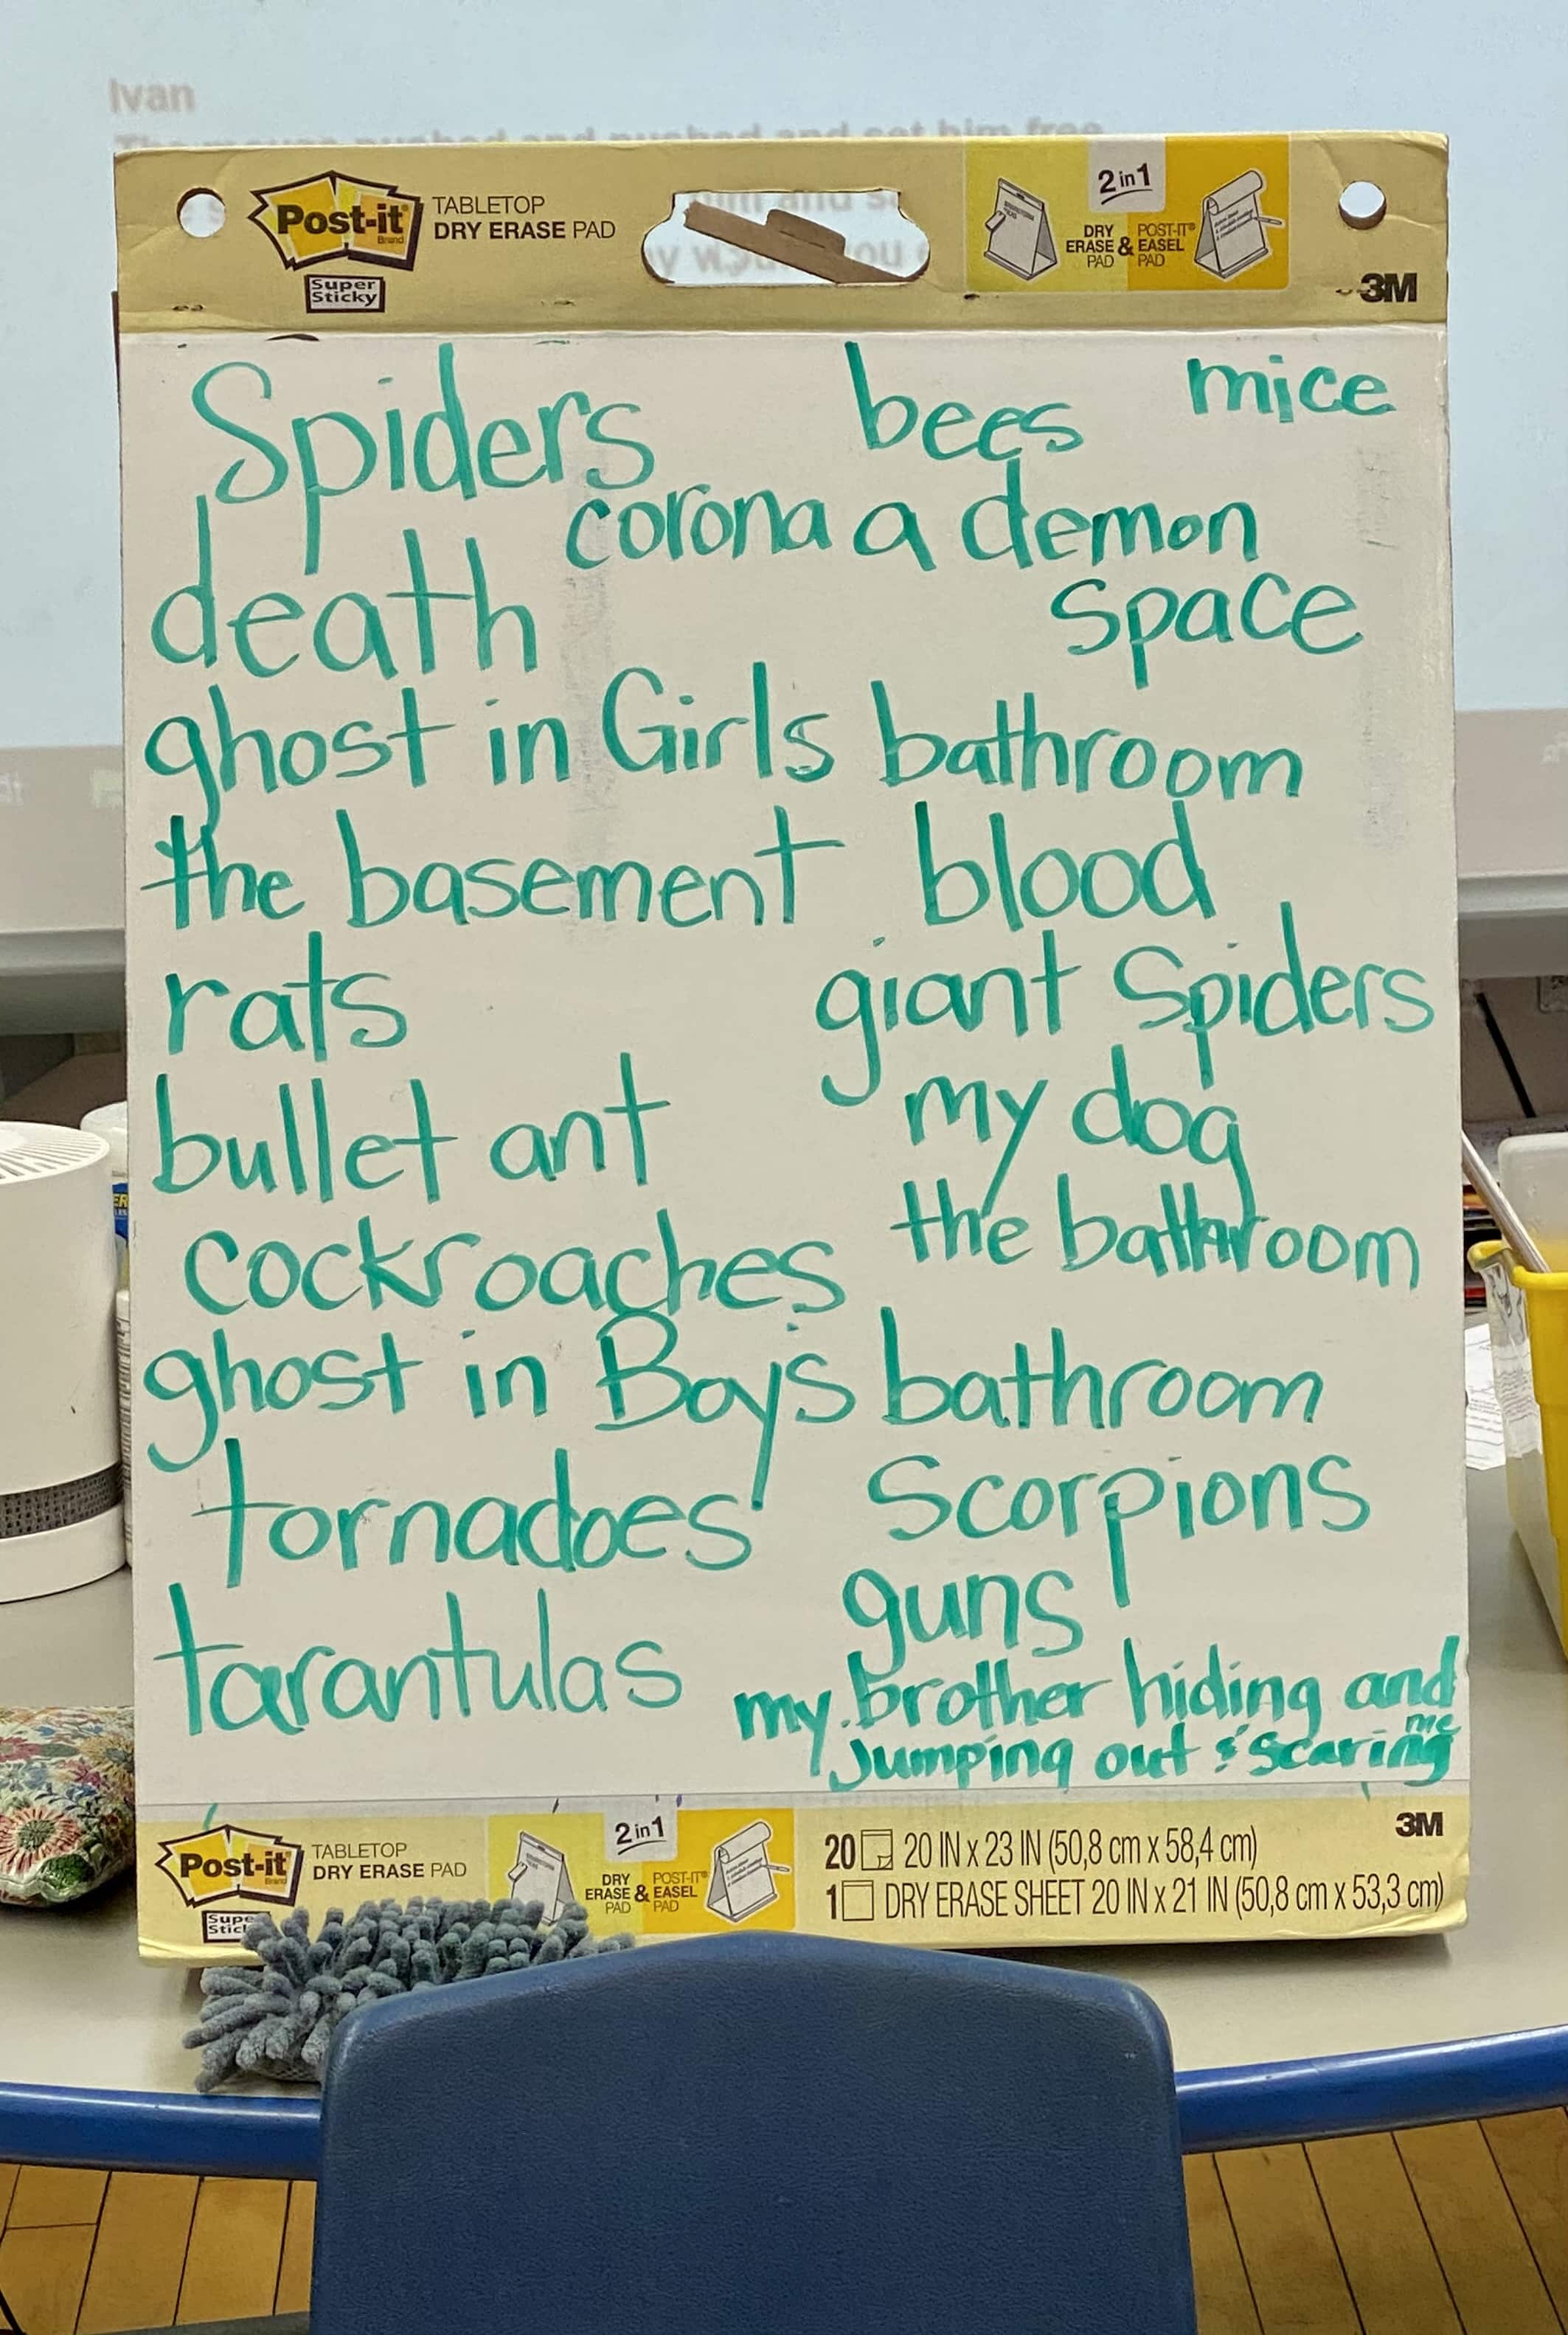 Ivan
The mouse pushed and pushed and set him free.
Post-it
Brand
Super
Sticky
TABLETOP
DRY ERASE PAD
him and s
2 in 1
DRY
ERASE
PAD
&
POST-IT®
EASEL
PAD
3M
Spiders bees mice
corona a demon
death space
ghost in Girls bathroom
the basement blood
rats giant Spiders
bullet ant my dog
cockroaches the bathroom
ghost in Boys bathroom
tornadoes Scorpions
tarantulas guns
my brother hiding and
Jumping out & scaring me
Post-it
Brand
Supe
Stic
TABLETOP
DRY ERASE PAD
2 in 1
DRY
ERASE
PAD
&
POST-IT®
EASEL
PAD
20 20 IN x 23 IN (50,8 cm x 58,4 cm)
1 DRY ERASE SHEET 20 IN x 21 IN (50,8 cm x 53,3 cm)
3M